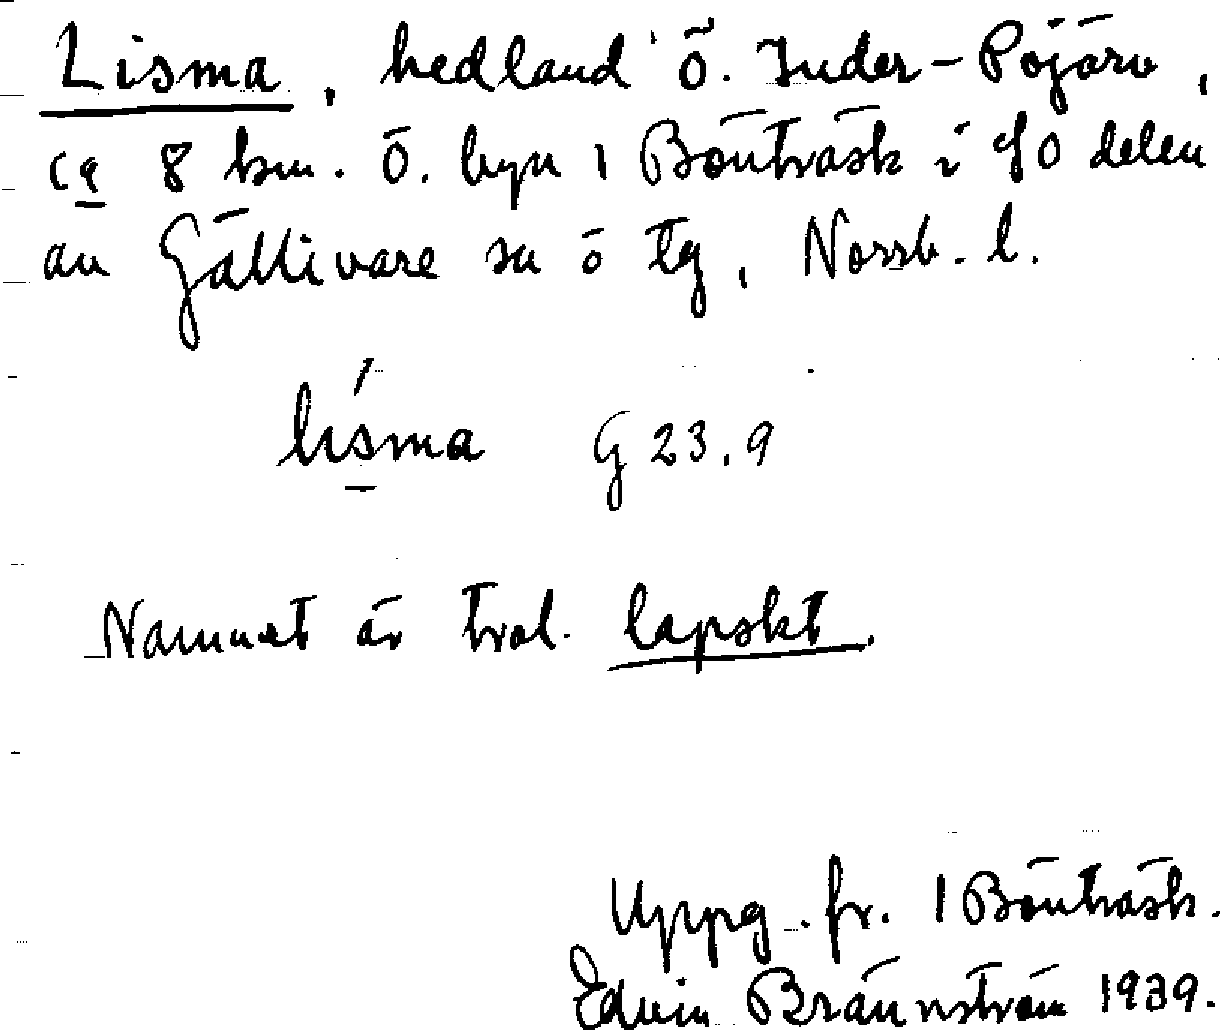 Lisma, hedland ö. Inder-Pojärv,
ca 8 km. ö. byn 1 Bönträsk i SO delen
av Gällivare sn o tg, Norrb. l.
lisma G 23.9
Namnet är trol. lapskt.
Uppg. fr. 1 Bönträsk.
Edvin Brännström 1939.